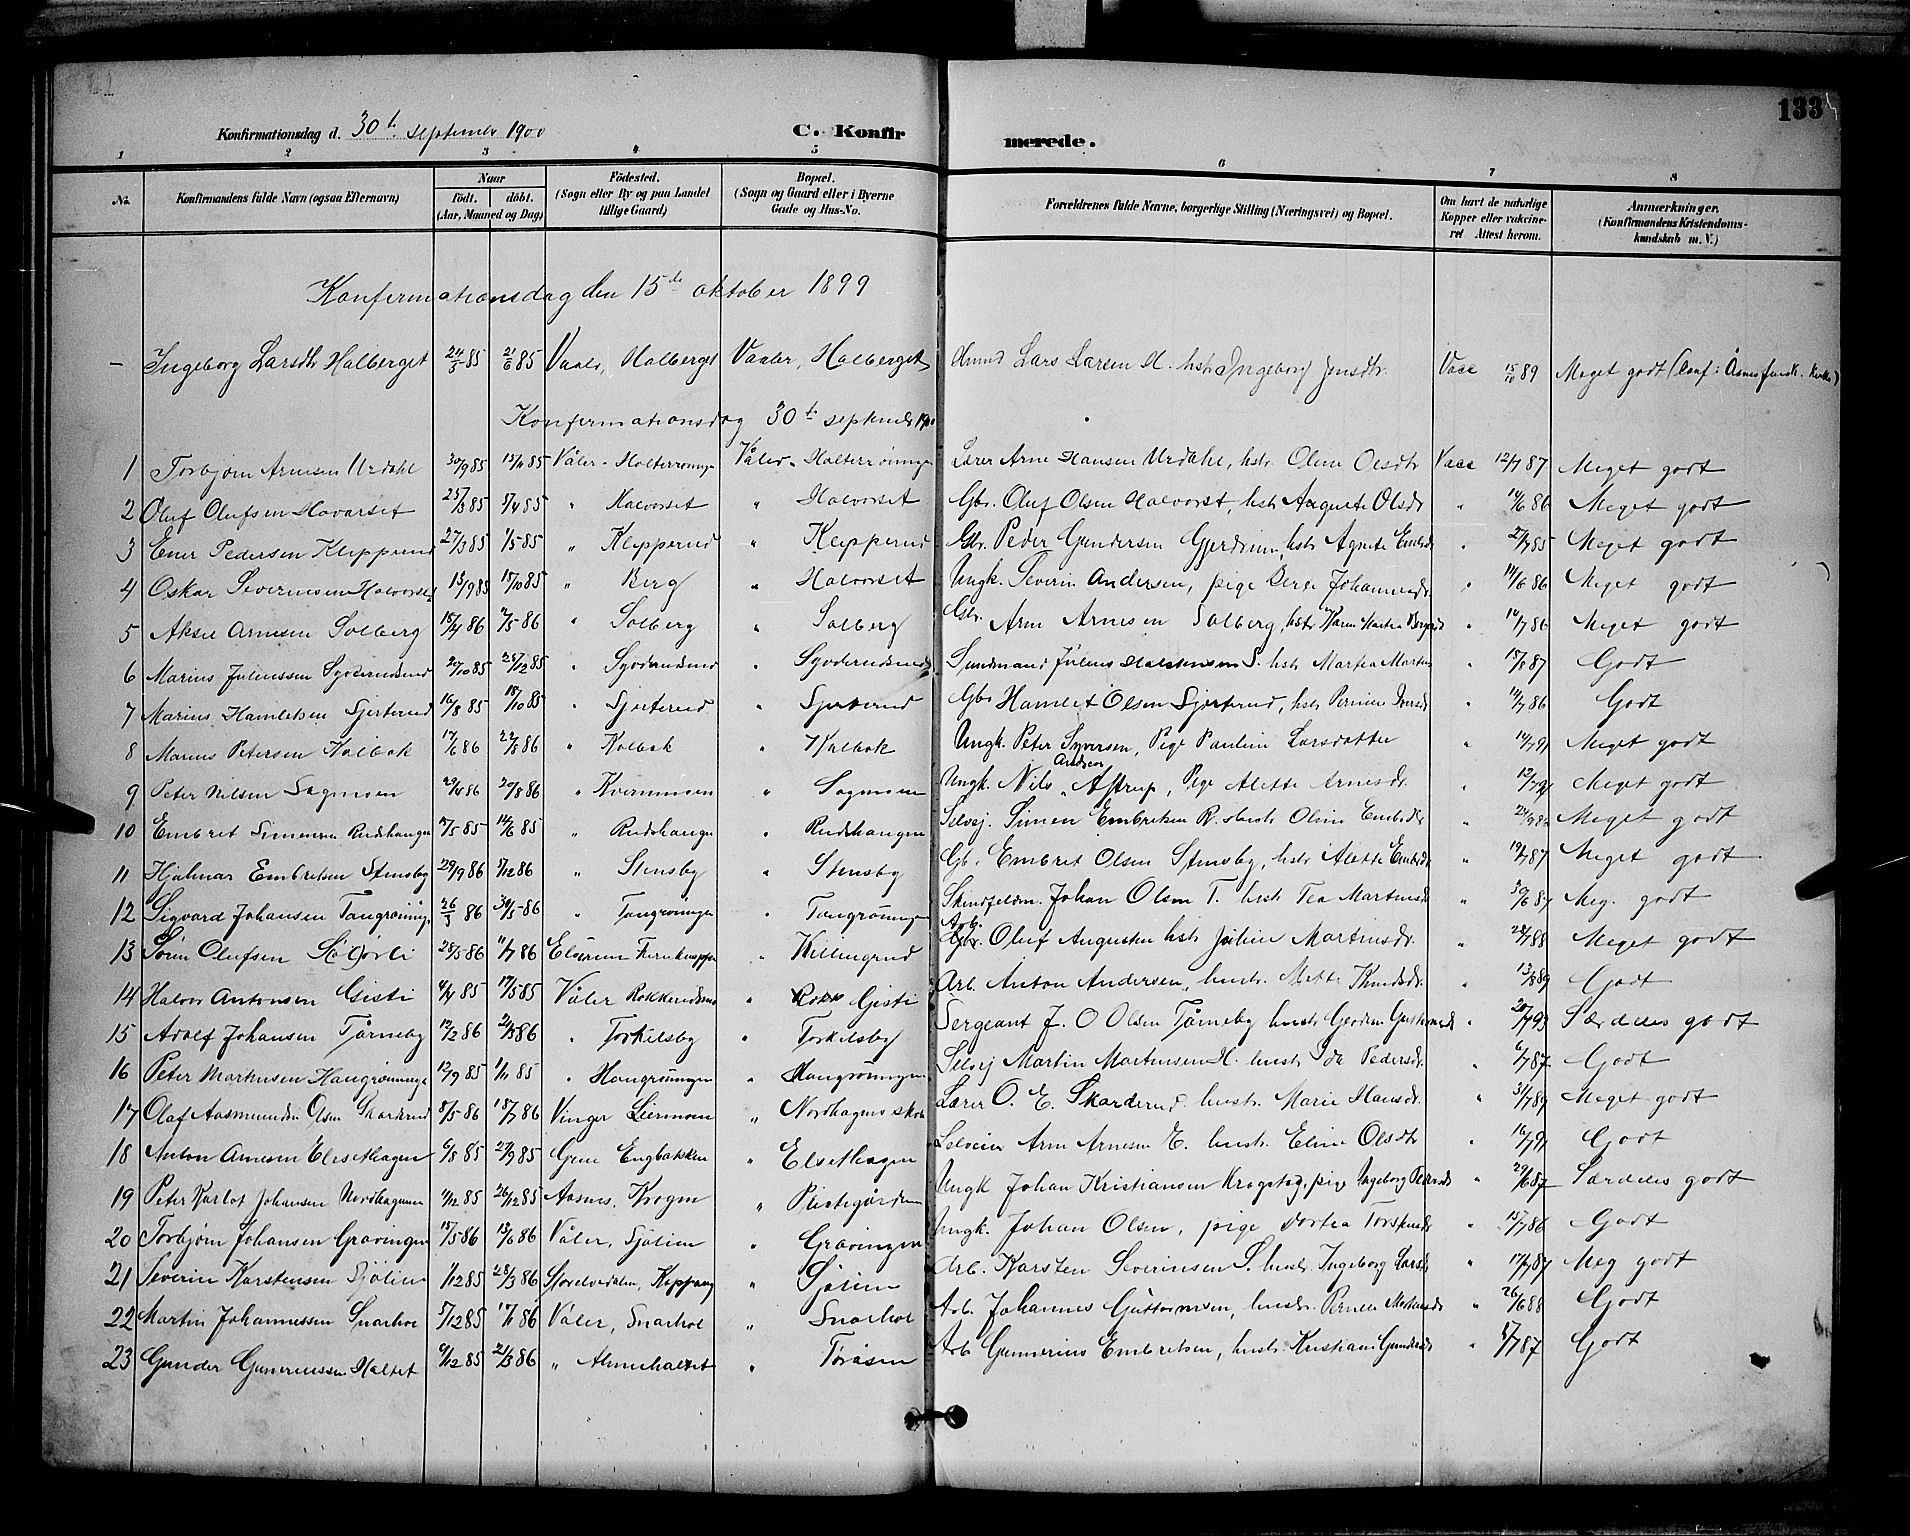 133
Konfirmationsdag d. 30te september 1900 C. Konfirmerede.
1 2 3 4 5 6 7 8
No. Konfirmandens fulde Navn (ogsaa Efternavn) Naar født. døbt. (Aar, Maaned og Dag) Fødested. (Sogn eller By og paa Landet tillige Gaard) Bopæl. (Sogn og Gaard eller i Byerne Gade og Hus-No. Forældrenes fulde Navne, borgerlige Stilling (Næringsvei) og Bopæl. Om havt de naturlige Kopper eller vakcineret Attest herom. Anmærkninger. (Konfirmandens Kristendomskundskab m. V.)
Konfirmationsdag den 15de oktober 1899
– Ingeborg Larsdtr Halberget 24/5 85 21/6 85 Vaaler, Halberget Vaaler, Halberget Lars Larsen H. hstr Ingeborg Jensdtr. Vacc 15/10 89 Meget godt
Konfirmationsdag 30te september 1900
1 Torbjørn Arnesen Urdahl 30/9 85 15/11 85 Våler Holterrøningen Våler Holterrøningen Lærer Arne Hansen Urdahl, hstr. Oline Olsdtr Vacc 12/7 87 Meget godt
2 Oluf Olufsen Havarset 25/3 85 5/4 85 " Halvorset " Halvorset Gbr. Oluf Olsen Halvorset, hstr Auguste Olsdr " 14/6 86 Meget godt
3 Ener Pedersen Klipperud 27/3 85 1/5 85 " Klipperud " Klipperud Gbr. Peder Gundersen Gjerdrum, hstr Agnete Embrdr " 2/7 85 Meget godt
4 Oskar Severinsen Halvorset 15/9 85 15/10 85 " Berg " Halvorset Ungk. Severin Andersen, pige Berte Johannesdr. " 14/6 86 Meget godt
5 Aksel Arnesen Solberg 18/4 86 7/5 86 " Solberg " Solberg Gbr. Arne Arnesen Solberg, hstr Karen Martea " 14/7 86 Meget godt
6 Marius Juliussen Syderudsend 20/10 85 25/12 85 " Syderudsend " Syderudsend Julius Halstensen S. hstr Martea " 15/8 87 Godt
7 Marius Hamletsen Sjorterud 16/8 85 18/10 85 " Sjorterud " Sjorterud Gbr Hamlet Olsen Sjorterud, hstr Pernine " 14/7 86 Godt
8 Marius Petersen Kolbak 17/6 86 22/8 86 " Kolbak " Kolbak Ungk. Peter Syversen, Pige Pauline Larsdatter " 14/7 91 Meget godt
9 Peter Nilsen Sagmoen 29/4 86 20/8 86 " Kvernmoen " Sagmoen Ungk. Nils Andreas Astrup, Pige Alette Arnesdr. " Meget godt
10 Embret Simensen Rudshaugen 5/5 85 14/6 85 " Rudshaugen " Rudshaugen Selvej. Simen Embretsen R. hustr Oline Embrdr " Meget godt
11 Hjalmar Embretsen Stensby 29/9 86 5/12 86 " Stensby " Stensby Gb. Embret Olsen Stensby, hstr Alette Embrdr " 19/7 87 Meget godt
12 Sigvard Johansen Tangrøningen 26/3 86 30/5 86 " Tangrøningen " Tangrøningen Johan Olsen T. hustr Tea Martinsdr " Meg. godt
13 Søren Olufsen 28/5 86 11/7 86 Elverum " Killingrud Arb. Oluf Augusten hstr Juline Martinsdr. " 28/7 88 Meget godt
14 Halvor Antonsen Gisti 4/4 85 17/5 85 Våler Rokkerudsmo " Gisti Arb. Anton Andersen, hustr. Mette Knudsdr. " 13/8 89 Godt
15 Adolf Johansen Tårneby 12/2 86 86 " Torkilsby " Torkilsby Sergeant J. O Olsen Tårneby hustr Gerdine " 20/7 93 Særdeles godt
16 Peter Martinsen Haugrøningen 12/9 85 1/11 85 " Haugrøningen " Haugrøningen Selvej Martin Martinsen H. hustr Ida Pedersdr. " 6/7 87 Godt
17 Olaf Aasmundsen Olsen Skarderud 8/5 86 18/7 86 Vinger Liermoen " Nordhagens skole Lærer O. E. Skarderud. hustr. Marie Hansdr. " 31/7 89 Meget godt
18 Anton Arnesen Elsethagen 6/8 85 27/9 85 Grue Engbakken " Elsethagen Selveier Arne Arnesen E. hustr. Eline Olsdtr " 16/7 91 Godt
19 Peter Karlot Johansen Nordhagmoen 11/12 85 26/12 85 Aasnes, Krogen " Plastegården Ungk Johan Kristiansen Krogstog, pige Ingeborg " 29/6 87 Særdeles godt
20 Torbjørn Johansen Gravingen 15/5 86 13/6 86 Våler, Sjølien " Gravingen Ungk. Johan Olsen, pige Dortea " 15/7 86 Godt
21 Severin Karstensen Sjølien 1/12 85 28/3 86 Storelvedalen, Koppang " Sjølien Arb. Karsten Severinsen S. hustr. Ingeborg Larsdr " 17/7 87 Meg godt
22 Martin Johannessen Snarhol 5/12 85 17/1 86 Våler, Snarhol " Snarhol Arb. Johannes Guttormsen, hustr. Pernee Mortensdr " 26/6 88 Godt
23 Gunder Gunneriussen Haltet 6/12 85 21/3 86 " Almehaltet " Toråsen Arb Gunnerius Embretsen, hustr Kristiane Gundersdr " 5/7 87 Godt